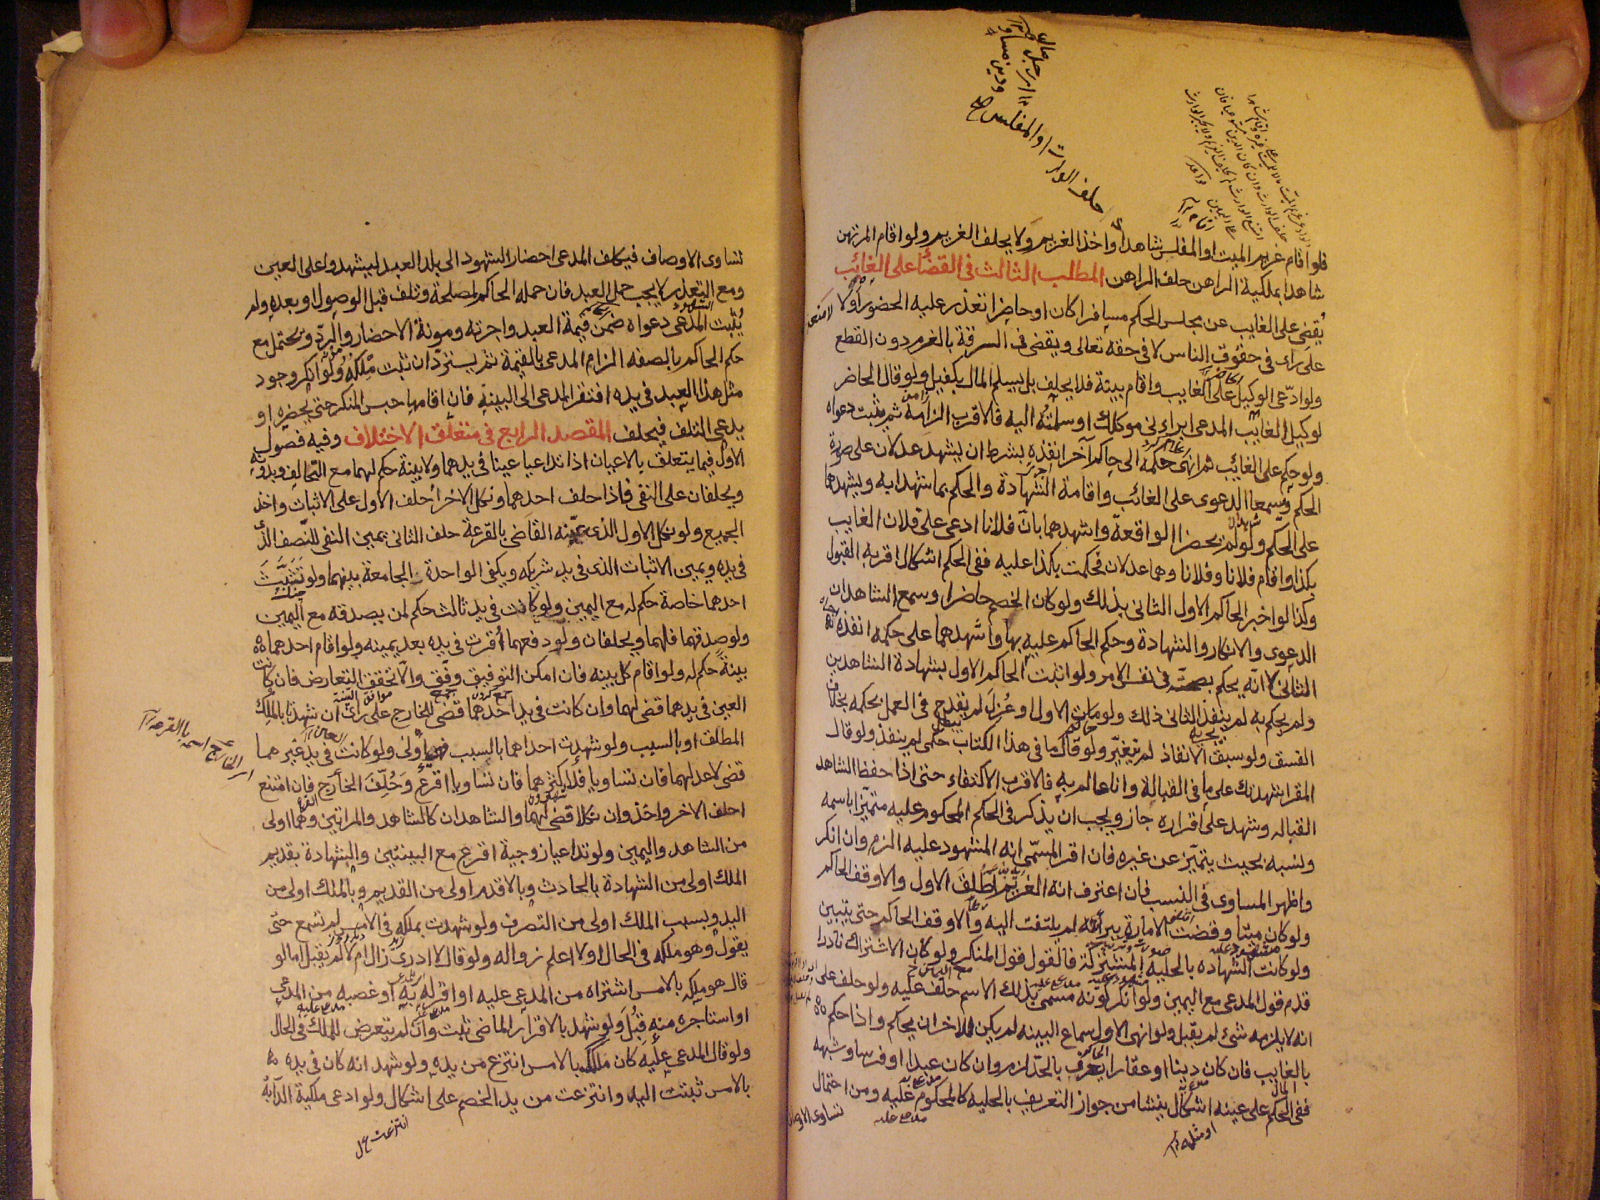 فلو اقام غريم الميت او المفلس شاهدا واخذ الغريم ولا يحلف الغريم ولو اقام المرتهن
شاهدا بملكية الراهن حلف الراهن المطلب الثالث في القضاء على الغائب
يُقضى على الغايب عن مجلس الحكم مسافرا كان او حاضرا تعذر عليه الحضور اولا
على راى في حقوق الناس لا في حقه تعالى ويقضى في السرقة بالغرم دون القطع
ولو ادّعى الوكيل على الغايب واقام بينة فلا يحلف بل يسلم المال بكفيل ولو قال الحاضر
لوكيل الغايب المدعى ابراءنى موكلك او سلمته اليه فالاقرب الزامه ثم يثبت دعواه
ولو حكم على الغائب ثم انهى حكمه الى حاكم آخر انفذه بشرط ان يشهد عدلان على صورة
الحكم وسمعا الدعوى على الغائب واقامة الشهادة والحكم بما شهدا به ويشهدهما
على الحكم ولو لم يحضرا الواقعة واشهدهما بان فلانا ادعى على فلان الغايب
بكذا واقام فلانا وفلانا وهما عدلان فحكمت بكذا عليه ففى الحكم اشكال اقربه القبول
وكذا لو اخبر الحاكم الاول الثانى بذلك ولو كان الخصم حاضرا وسمع الشاهدان
الدعوى والانكار والشهادة وحكم الحاكم عليه بها واشهدهما على حكمه انفذه
الثانى لا انه يحكم بصحته في نفس الامر ولو اثبت الحاكم الاول بشهادة الشاهدين
ولم يحكم به لم ينفذ الثانى ذلك ولو مات الاول او عُزل لم يقدح في العمل بحكمه بخلاف
الفسق ولو سبق الانفاذ لم تغيّر ولو قال ما في هذا الكتاب حكمى لم ينفذ ولو قال
المقر اشهدتك على ما في القبالة وانا عالم به فالاقرب الاكتفاء حتى اذا حفظ الشاهد
القباله وشهد على اقراره جاز ويجب ان يذكر في الحكم المحكوم عليه متميّزا باسمه
ونسبه بحيث يتميّز عن غيره فان اقر المسمّى انه المشهود عليه الزم وان انكر
واظهر المساوى في النسب فان اعترف انه الغريم اطلق الاول والا وقف الحاكم
ولو كان ميتا وقضت الامارة ببرائته لم يلتفت اليه والا وقف الحاكم حتى يتبين
ولو كانت الشهاده بالحليه المشتركة فالقول قول المنكر ولو كان الاشتراك نادرا
قدم قول المدعى مع اليمين ولو انكر كونه مسمى بذلك الاسم حلف عليه ولو حلف على
انه لا يلزمه شئ لم يقبل ولو انهى الاول سماع البينه لم يكن للاخر ان يحكم واذا حكم
بالغايب فان كان دينا او عقارا يعرف بالحد لزم وان كان عبدا او فرسا وشبهه
ففى الحكم على عينه اشكال ينشا من جواز التعريف بالحليه كالمحكوم عليه ومن احتمال
تساوى الاوصاف
تساوى الاوصاف فيكلف المدعى احضار الشهود الى بلد العبد ليشهدوا على العين
ومع التعذر لا يجب حمل العبد فان حمله الحاكم لمصلحة وتلف قبل الوصول او بعده ولم
يُثبت المدعى دعواه ضمن قيمة العبد واجرته ومونة الاحضار والردّ ويحتمل مع
حكم الحاكم بالصفه الزام المدعى بالقيمة ثم يستردّ ان ثبت مِلكه ولو انكر وجود
مثل هذا العبد في يده افتقر المدعى الى البينة فان اقامها حبس المنكر حتى يحضره او
يدعى التلف فيحلف المقصد الرابع في متعلق الاختلاف وفيه فصول
الاول فيما يتعلق بالاعيان اذا تداعيا عينا في يدهما ولا بينة حكم لهما مع التحالف وبدونه
ويحلفان على النفى فاذا حلف احدهما ونكل الاخر احلف الاول على الاثبات واخذ
الجميع ولو نكل الاول الذى عيّنه القاضى بالقرعة حلف الثانى يمين النفى للنصف الذى
في يده ويمين الاثبات الذى في يد شريكه ويكفى الواحدة الجامعة بينهما ولو تشبّث
احدهما خاصة حكم له مع اليمين ولو كانت في يد ثالث حكم لمن يصدقه مع اليمين
ولو صدقهما فلهما ويحلفان ولو دفعهما أقرت في يده بعد يمينه ولو اقام احدهما
بينة حكم له ولو اقام كل بينه فان امكن التوفيق وفّق والا تحقق التعارض فان كانت
العين في يدهما قضى لهما وان كانت في يد احدهما قضى للخارج على راى ان شهدتا بالملك
المطلق او بالسبب ولو شهدت احداهما بالسبب فهى اولى ولو كانت في يد غيرهما
قضى لاعدلهما فان تساويا فلاكثرهما فان تساويا اقرع وحُلِّف الخارج فان امتنع
احلف الاخر واخذ وان نكلا قضى لهما والشاهدان كالشاهد والمراتين وهما اولى
من الشاهد واليمين ولو تداعيا زوجية اقرع مع البينتين والشهادة بقديم
الملك اولى من الشهادة بالحادث وبالاقدم اولى من القديم وبالملك اولى من
اليد وبسبب الملك اولى من التصرف ولو شهدت بملكه في الامس لم تسمع حتى
يقول وهو ملكه في الحال او لا اعلم زواله ولو قال لا ادرى زال ام لا لم يقبل اما لو
قال هو ملكه بالامس اشتراه من المدعى عليه او اقر له به او غصبه من المدعى
او استاجره منه قُبل ولو شهد بالاقرار الماضى ثبت وان لم يتعرض للملك في الحال
ولو قال المدعى عليه كان ملكك بالامس انتزع من يده ولو شهد انه كان في يده
بالامس ثبتت اليه وانتزعت من يد الخصم على اشكال ولو ادعى ملكية الدابة